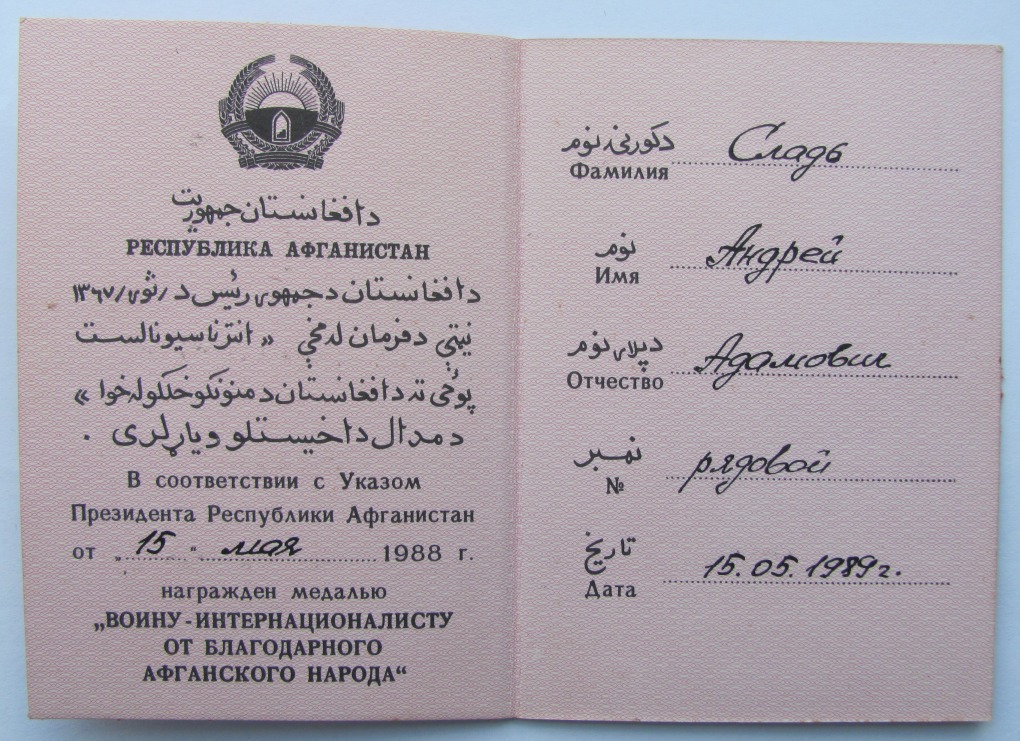 دافغانستان جمهوریت
РЕСПУБЛИКА АФГАНИСТАН
دافغانستان دجمهوری رئیس د /ثور/ ۱۳۶۷
نیټې دفرمان له مخې «انترناسیونالست
پوځی ته دافغانستان دمننونکو خلکو له خوا»
دمدال داخیستلو ویاړلری .
В соответствии с Указом
Президента Республики Афганистан
от „ 15 “ мая 1988 г.
награжден медалью
„ВОИНУ-ИНТЕРНАЦИОНАЛИСТУ
ОТ БЛАГОДАРНОГО
АФГАНСКОГО НАРОДА“
دکورنۍ نوم
Фамилия Сладь
نوم
Имя Андрей
دپلار نوم
Отчество Адамович
نمبر
№ рядовой
تاریخ
Дата 15.05.1989г.